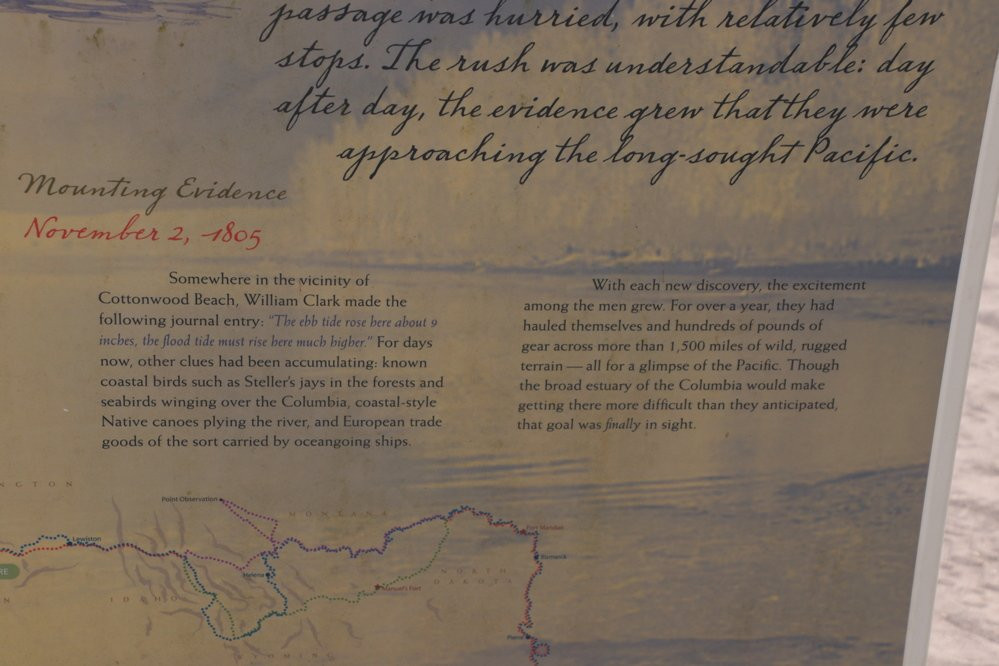 passage was hurried, with relatively few
stops. The rush was understandable: day
after day, the evidence grew that they were
approaching the long-sought Pacific.
Mounting Evidence
November 2, 1805
Somewhere in the vicinity of
Cottonwood Beach, William Clark made the
following journal entry: "The ebb tide rose here about 9
inches, the flood tide must rise here much higher." For days
now, other clues had been accumulating: known
coastal birds such as Steller's jays in the forests and
seabirds winging over the Columbia, coastal-style
Native canoes plying the river, and European trade
goods of the sort carried by oceangoing ships.
With each new discovery, the excitement
among the men grew. For over a year, they had
hauled themselves and hundreds of pounds of
gear across more than 1,500 miles of wild, rugged
terrain — all for a glimpse of the Pacific. Though
the broad estuary of the Columbia would make
getting there more difficult than they anticipated,
that goal was finally in sight.
NGTON
Point Observation
MONTANA
Lewiston
Fort Mandan
Bismarck
RE
Helena
NORTH
DAKOTA
Manuel's Fort
IDAHO
Pierre
WYOMING